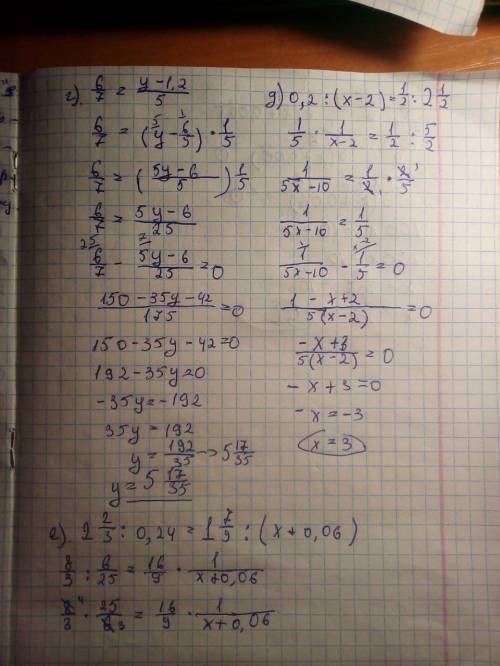 г). 6/7 = (y-1,2)/5
6/7 = (y - 6/5) · 1/5
6/7 = ((5y-6)/5) 1/5
6/7 = (5y-6)/25
6/7 - (5y-6)/25 = 0
(150-35y-42)/175 = 0
150-35y-42=0
192-35y=0
-35y=-192
35y = 192
y = 192/35 -> 5 17/35
y = 5 17/35
д) 0,2 : (x-2) = 1/2 : 2 1/2
1/5 · 1/(x-2) = 1/2 : 5/2
1/(5x-10) = 1/2 · 2/5
1/(5x-10) = 1/5
1/(5x-10) - 1/5 = 0
(1-x+2)/(5(x-2)) = 0
(-x+3)/(5(x-2)) = 0
-x+3=0
-x=-3
x=3
е). 2 2/3 : 0,24 = 1 7/9 : (x+0,06)
8/3 : 6/25 = 16/9 · 1/(x+0,06)
8/3 · 25/6 = 16/9 · 1/(x+0,06)